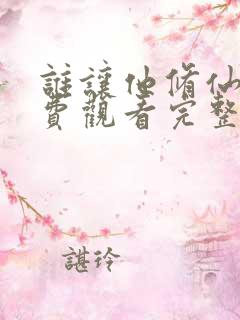 誰讓他修仙
費觀看完整
諶玲